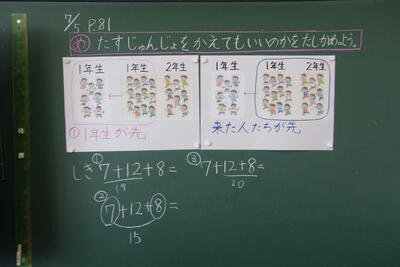 7/5 P.81
め たすじゅんじょをかえてもいいのかをたしかめよう。
1年生 1年生 2年生
①1年生が先
1年生 1年生 2年生
来た人たちが先
しき ①7+12+8=
19
②7+12+8=
15
③7+12+8=
20